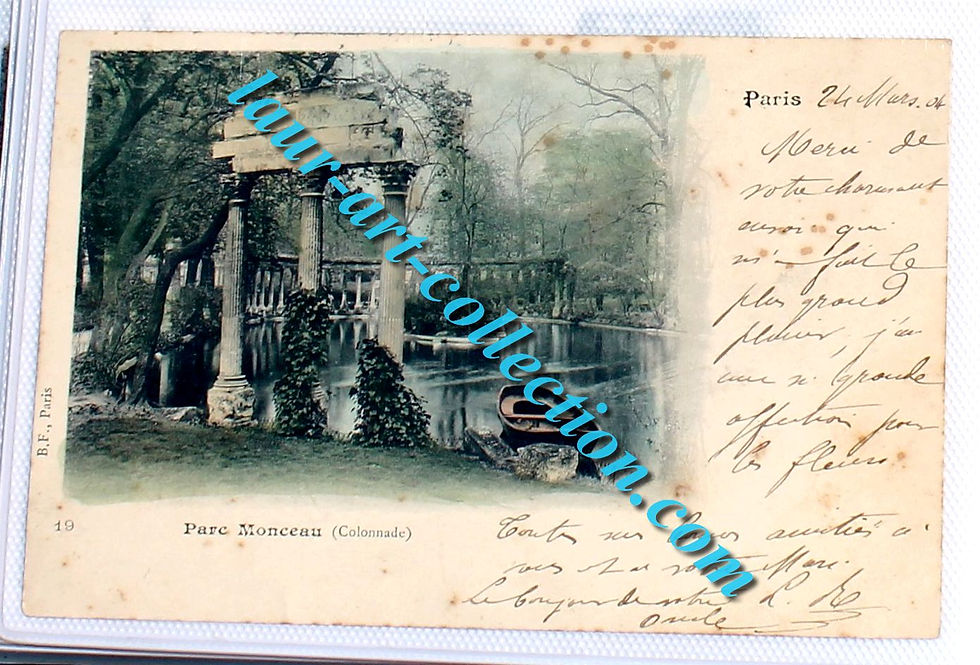 Paris 24 Mars. 04
Merci de
votre charmant
envoi qui
m'a fait le
plus grand
plaisir, j'ai
une si grande
affection pour
les fleurs
Toutes mes amitiés à
vous et à votre Mère.
Le bonjour de votre L. R.
Oncle
B.F., Paris
19
Parc Monceau (Colonnade)
laur-art-collection.com